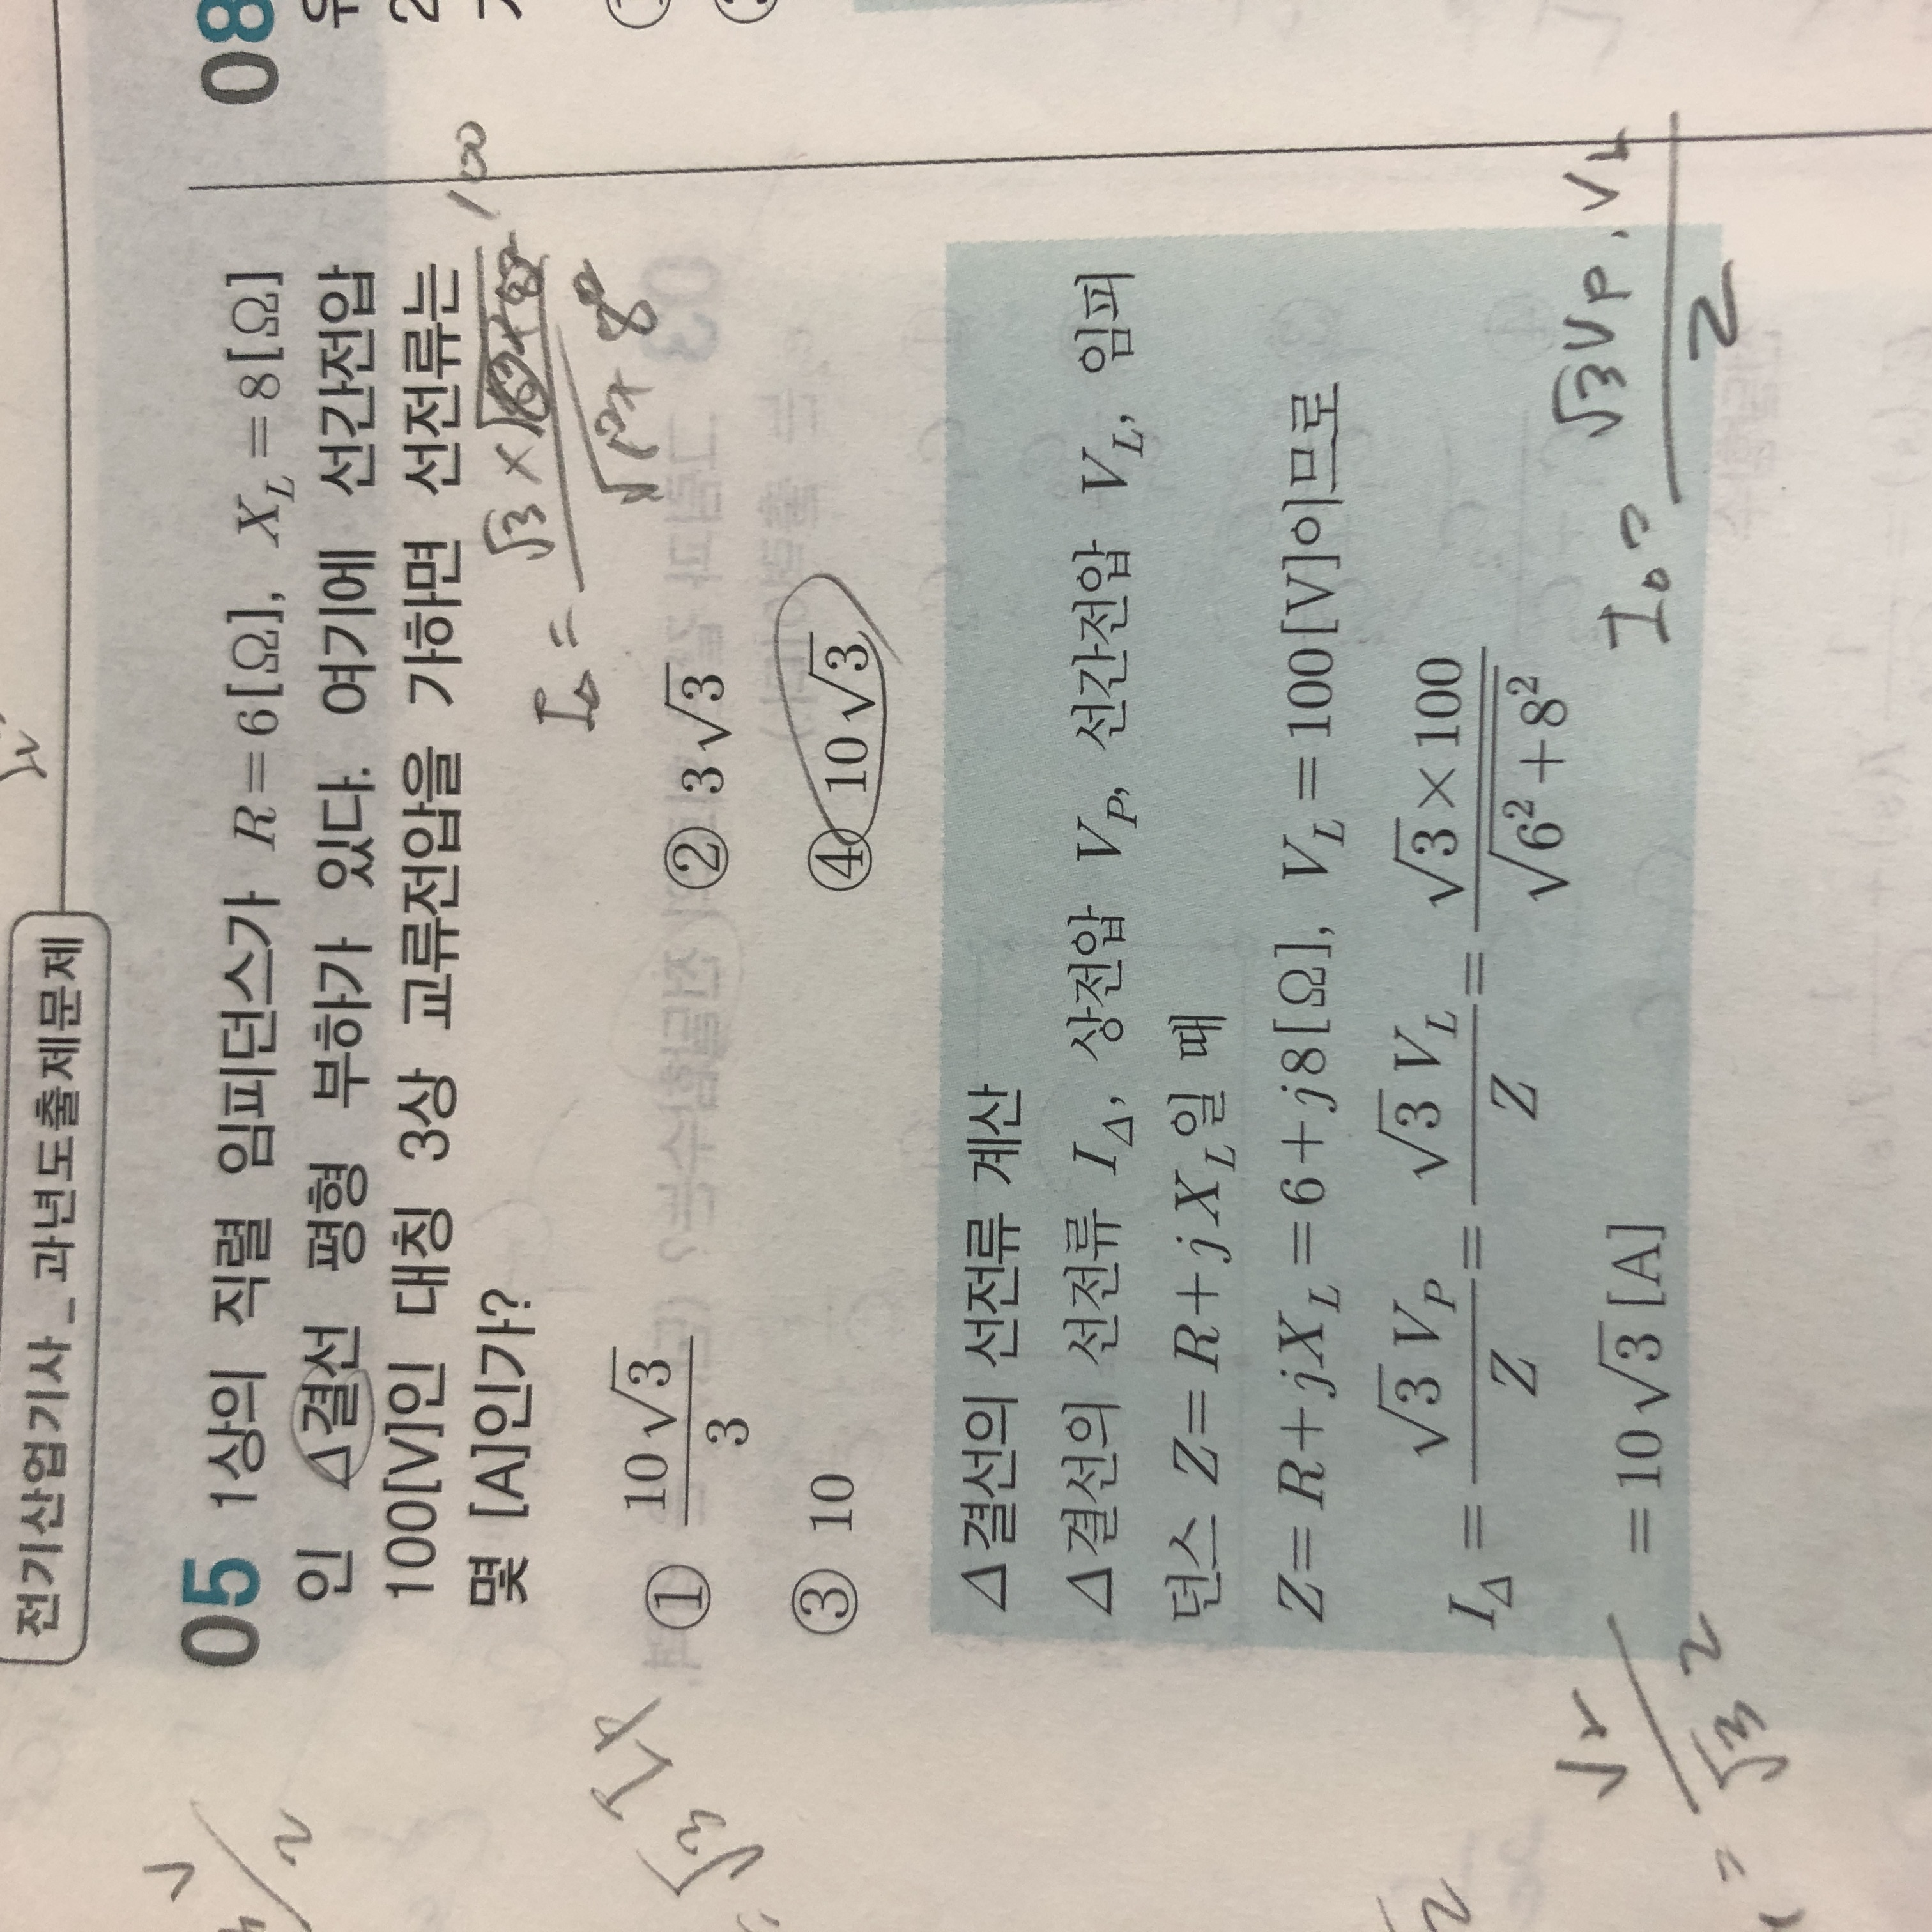 전기산업기사_과년도출제문제
05 1상의 직렬 임피던스가 R=6[Ω], X_L=8[Ω]
인 Δ결선 평형 부하가 있다. 여기에 선간전압
100[V]인 대칭 3상 교류전압을 가하면 선전류는
몇 [A]인가?
① 10√3/3 ② 3√3
③ 10 ④ 10√3
Δ결선의 선전류 계산
Δ결선의 선전류 I_Δ, 상전압 V_P, 선간전압 V_L, 임피
던스 Z=R+jX_L일 때
Z=R+jX_L=6+j8[Ω], V_L=100[V]이므로
I_Δ = √3 V_P/Z = √3 V_L/Z = √3×100/√(6²+8²)
=10√3 [A]
08
100